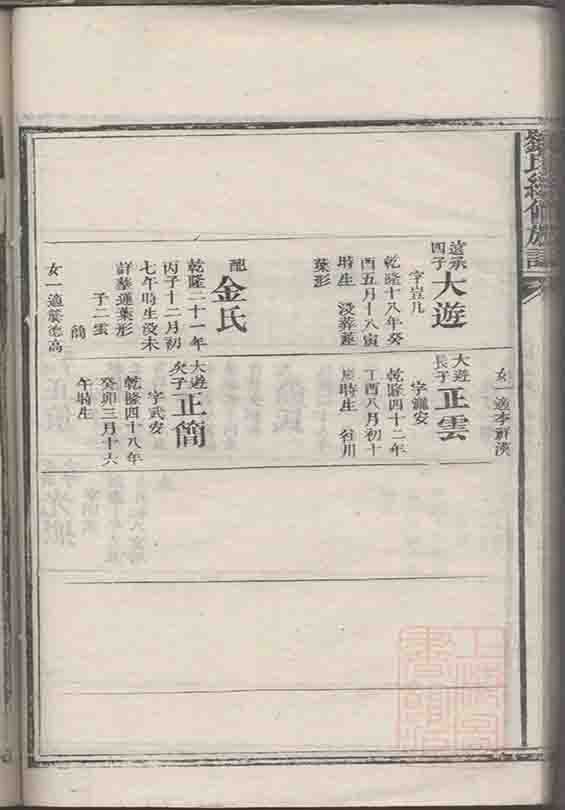 劉氏續修族譜
遠承四子
大遊
字豈凡
乾隆十八年癸
酉五月十八寅
時生 没葬蓮
葉形
配
金氏
乾隆二十一年
丙子十二月初
七午時生没未
詳葬蓮葉形
子二雲
簡
女一適龔德高
女一適李祥漢
大遊長子
正雲
字瀧安
乾隆四十二年
丁酉八月初十
時生 谷川
大遊次子
正簡
字武安
乾隆四十八年
癸卯三月十六
午時生